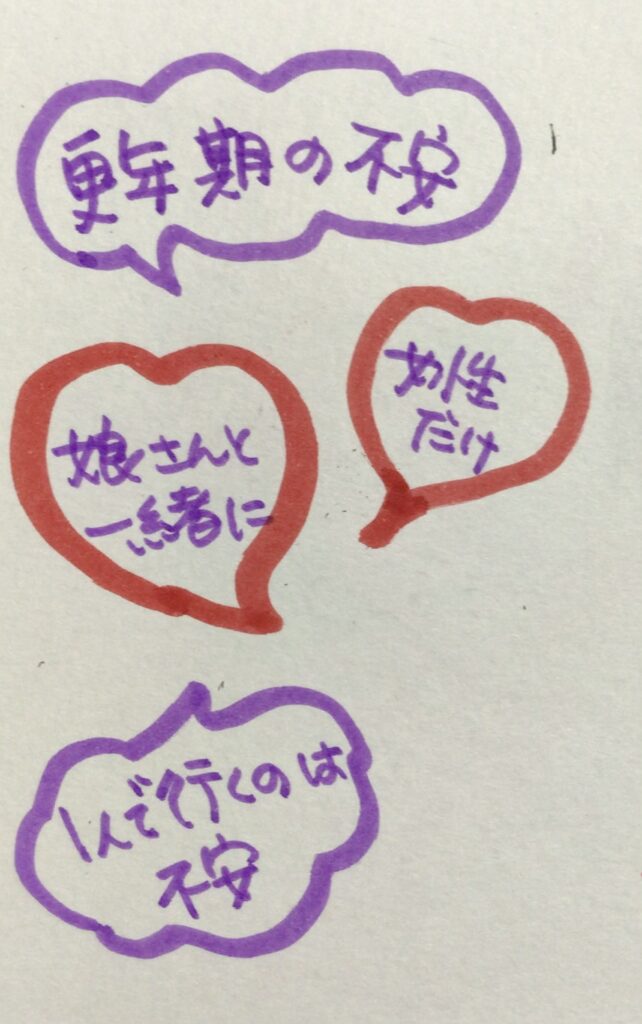 更年期の不安
女性
だけ
娘さんと
一緒に
1人で行くのは
不安